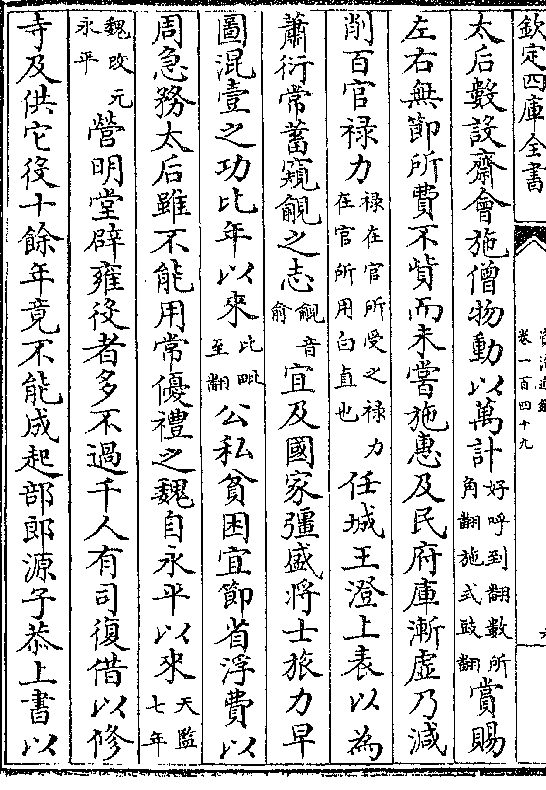 欽定四庫全書
卷一百四十九
太后數設齋會施僧物動以萬計好呼到翻數所角翻施式豉翻賞賜
左右無節所費不貲而未嘗施惠及民府庫漸虛乃減
削百官禄力禄在官所受之禄力在官所用白直也任城王澄上表以為
蕭衍常蓄窺覦之志覦音俞宜及國家彊盛將士旅力早
圖混壹之功比年以來比毗至翻公私貧困宜節省浮費以
周急務太后雖不能用常優禮之魏自永平以來天監七年
魏改元永平營明堂辟雍役者多不過千人有司復借以修
寺及供它役十餘年竟不能成起部郎源子恭上書以